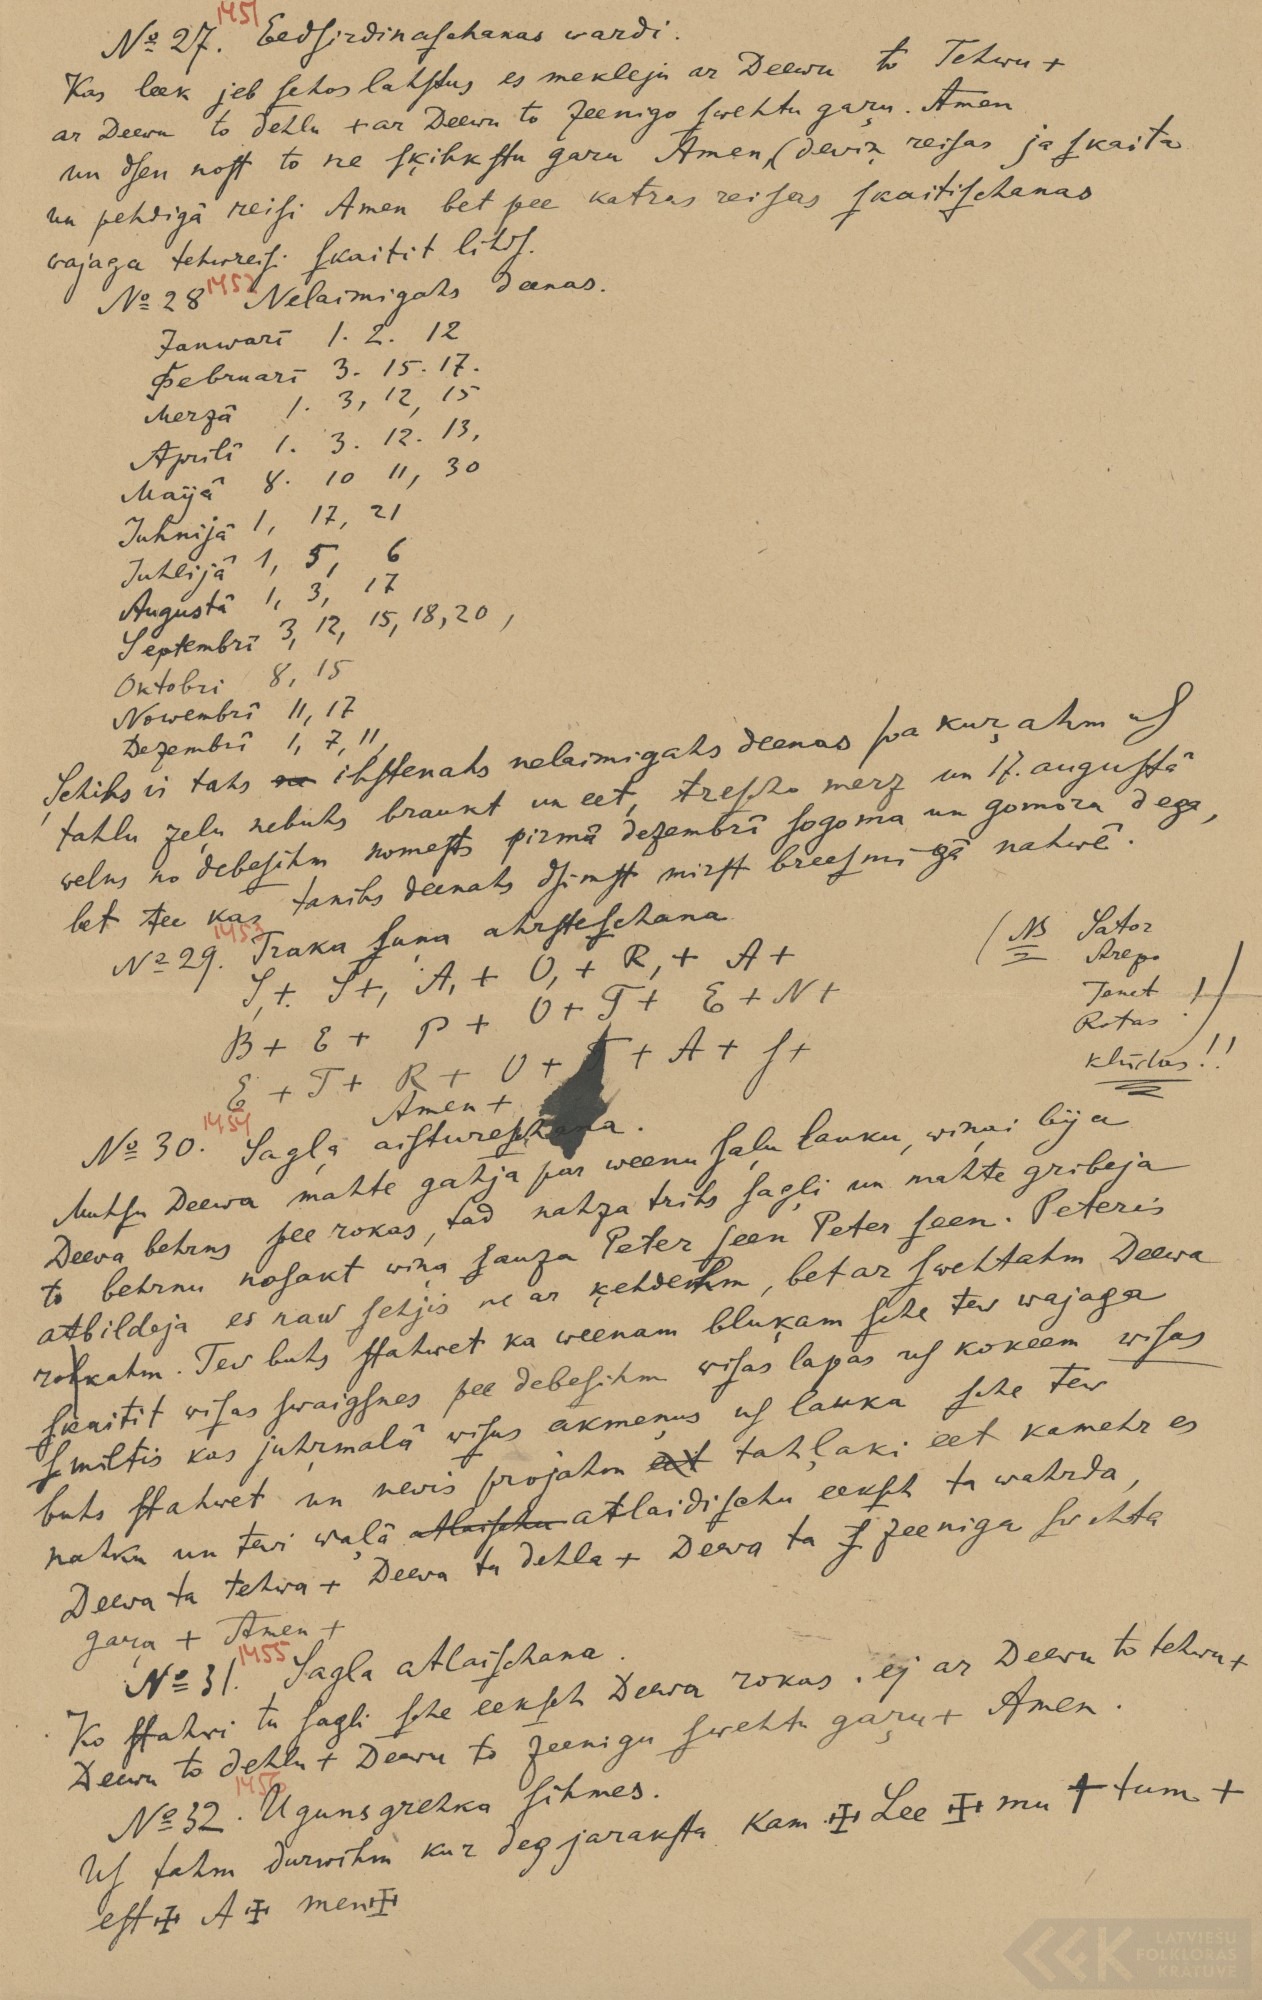 1451
No 27. Eedsirdinaschanas wardi.
Kas leek jeb schos lahstus es mekleju ar Deewu to Tehwu +
ar Deewu to dehlu + ar Deewu to zeenigo swehtu gaŗu. Amen
un dsen nost to ne sķihkstu garu Amen, (deviņ reisas ja skaita
un pehdigâ reisi Amen bet pee katras reisas skaitischanas
wajaga tehwreisi skaitit lihds.
1452
No 28 Nelaimigahs deenas.
Janwarī 1. 2. 12
Februarī 3. 15. 17.
Merzâ 1. 3, 12, 15
Aprilī 1. 3. 12. 13,
Maijâ 8. 10 11, 30
Juhnijâ 1, 17, 21
Juhlijâ 1, 5, 6
Augustâ 1, 3, 17
Septembrī 3, 12, 15, 18, 20,
Oktobri 8, 15
Nowembrī 11, 17
Dezembrī 1, 7, 11,
Schihs is tahs ihstenahs nelaimigahs deenas pa kuŗahm us
tahlu zeļu nebuhs braukt un eet, trescho merz un 17. augustâ
welns no debesihm nomests pirmâ dezembrī sogoma un gomora dega,
bet tee kas tanihs deenahs dsimst mirst breesmigâ nahwē.
1453
No 29. Traka suņa ahrsteschana
S,+. S+, A,+ O,+ R,+ A+
B+ E+ P+ O+ T+ E+N+
E+T+ R+ O+ T+A+S+
Amen+
(NB Sator
Arepo
Tenet !
Rotas !
kļūdas!!
1454
No 30. Sagļa aistureschana.
Muhsu Deewa mahte gahja par weenu saļu lauku, wiņai bija
Deewa behrns pee rokas, tad nahza trihs sagļi un mahte gribeja
to behrnu nosakt wiņa sauza Peter seen Peter seen. Peteris
atbildeja es naw sehjis ne ar ķehdehm, bet ar swehtahm Deewa
rokahm. Tew buhs stahwet ka weenam bluķam sche tew wajaga
skaitit wisas swaigsnes pee debesihm wisas lapas us kokeem wisas
smiltis kas juhŗmalâ wisus akmeņus us lauka sche tew
buhs stahwet un nevis projahm eet tahļaki eet kamehr es
nahku un tewi waļâ atlaischu atlaidischu eeksch ta wahrda,
Deewa ta tehwa + Deewa ta dehla + Deewa ta zeeniga swehta
gaŗa + Amen +
1455
No 31. Sagla atlaischana.
Ko stahwi tu sagli sche eeksch Deewa rokas. ej ar Deewu to tehwu+
Deewu to dehlu + Deewu to zeenigu swehtu gaŗu + Amen.
1456
No 32. Ugunsgrehka sihmes.
Us tahm durwihm kur deg jaraksta Kam ✠ Lee ✠ mu + tum +
est ✠ A ✠ men ✠
LATVIEŠU
FOLKLORAS
KRĀTUVE